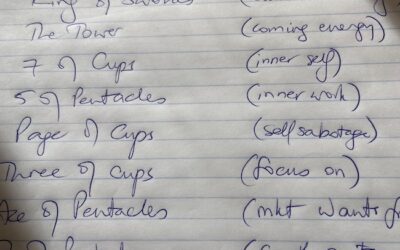 King of Swords
The Tower (coming energy)
7 of Cups (inner self)
5 of Pentacles (inner work)
Page of Cups (self sabotage)
Three of Cups (focus on)
Ace of Pentacles (mkt wants
Pentacles